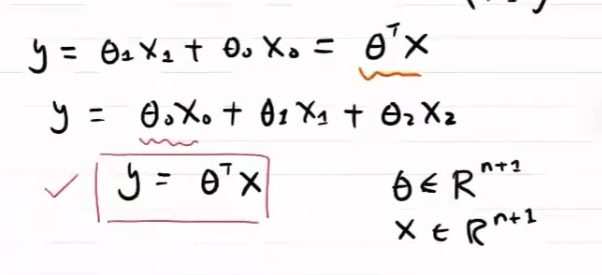 y = θ₁x₁ + θ₀x₀ = θᵀx
y = θ₀x₀ + θ₁x₁ + θ₂x₂
y = θᵀx
θ ∈ ℝⁿ⁺¹
x ∈ ℝⁿ⁺¹